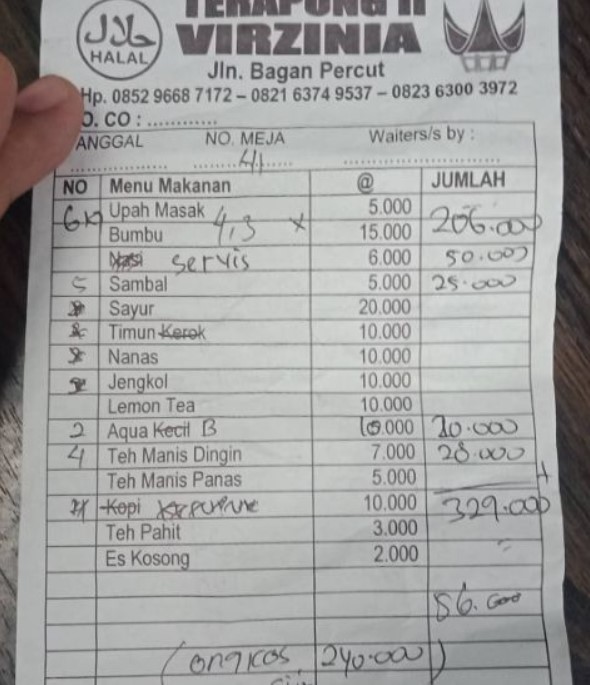 حلال
HALAL
TERAPUNG II
VIRZINIA
Jln. Bagan Percut
Hp. 0852 9668 7172 – 0821 6374 9537 – 0823 6300 3972
O. CO : ............
ANGGAL NO. MEJA Waiters/s by :
41
NO Menu Makanan @ JUMLAH
Upah Masak 5.000
4,3 x 206.000
Bumbu 15.000
Nasi servis 6.000 50.000
5 Sambal 5.000 25.000
Sayur 20.000
Timun Kerok 10.000
Nanas 10.000
Jengkol 10.000
Lemon Tea 10.000
2 Aqua Kecil B 10.000 20.000
4 Teh Manis Dingin 7.000 28.000
Teh Manis Panas 5.000
Kopi 10.000 329.000
Teh Pahit 3.000
Es Kosong 2.000
86.000
(ongkos 240.000)